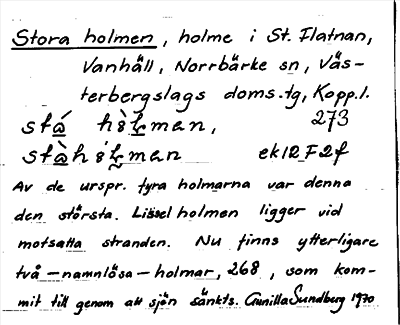 Stora holmen, holme i St. Flatnan,
Vanhäll, Norrbärke sn, Väs-
terbergslags doms.tg, Kopp.l.
stá hòlmen, 273
stàhólman ek12F2f
Av de urspr. fyra holmarna var denna
den största. Lissel holmen ligger vid
motsatta stranden. Nu finns ytterligare
två – namnlösa – holmar, 268, som kom-
mit till genom att sjön sänkts. Gunilla Sundberg 1970